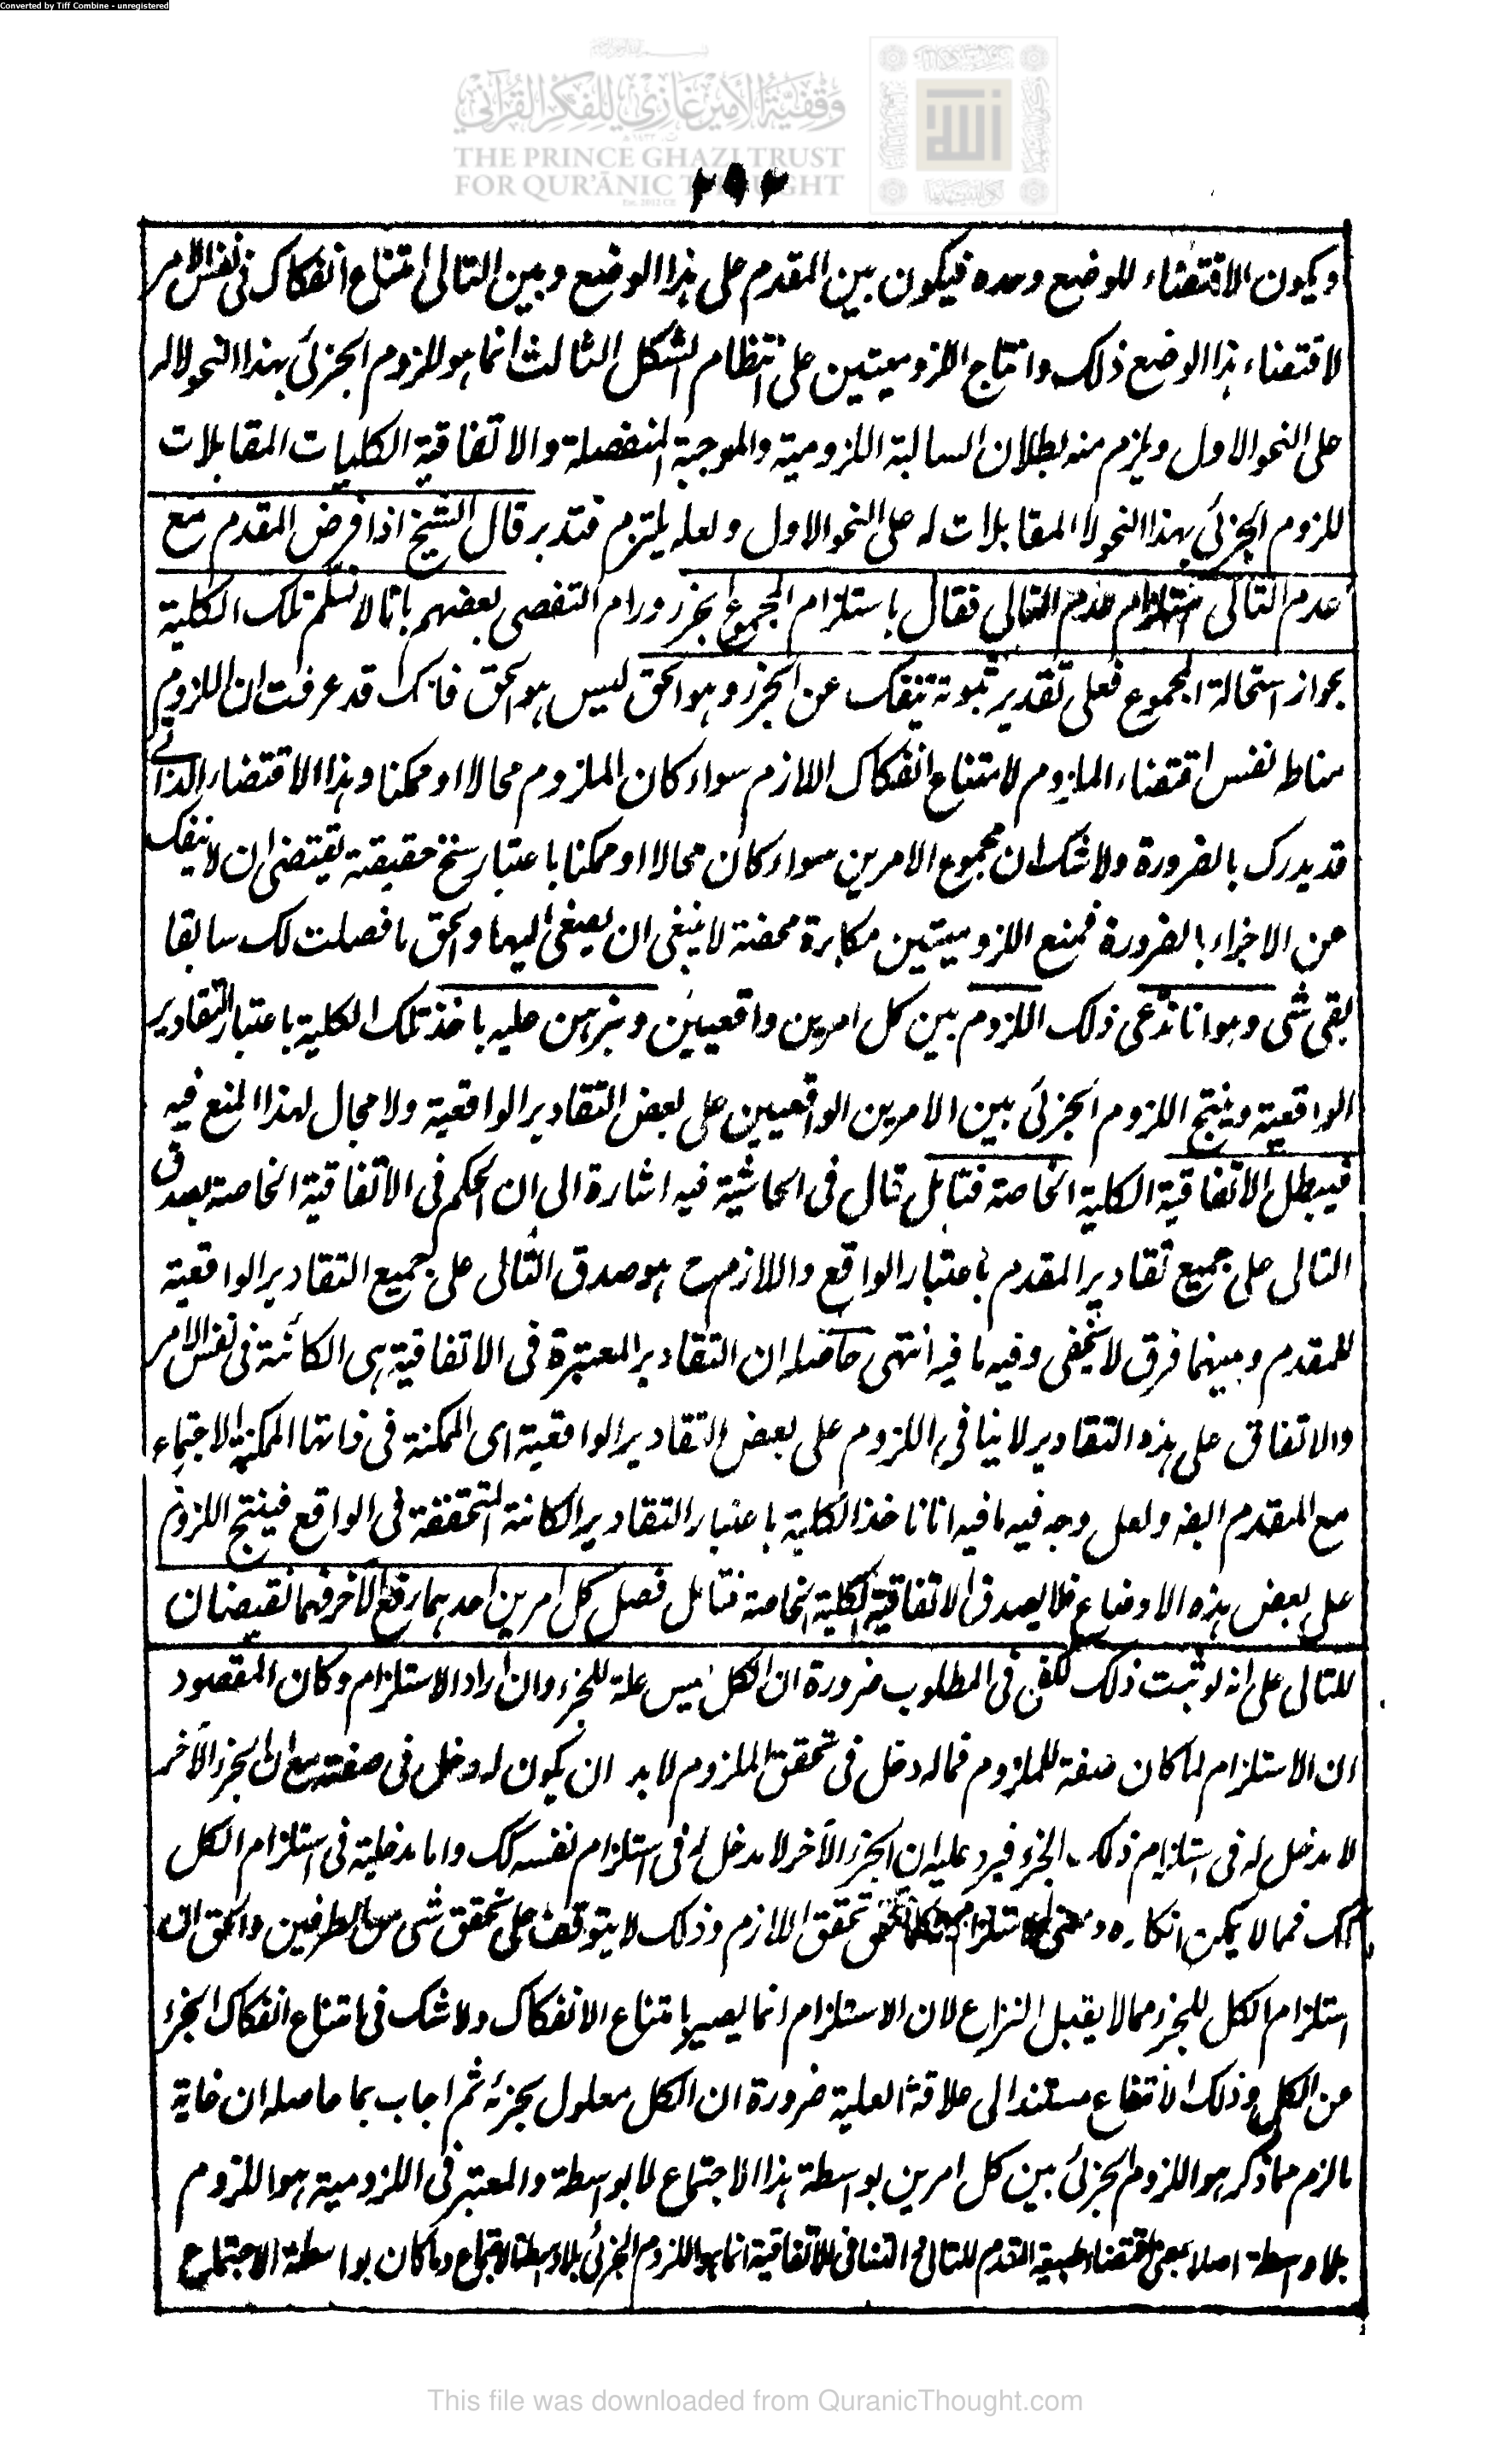 Converted by Tiff Combine - unregistered
وقفية الأمير غازي للفكر القرآني
THE PRINCE GHAZI TRUST
FOR QUR'ĀNIC THOUGHT
٢٩٢
ويكون الاقتضاء للوضع وحده فيكون بين المقدم على هذا الوضع وبين التالى امتناع انفكاك فى نفس الامر
لاقتضاء هذا الوضع ذلك وانتاج اللزوميتين على انتظام الشكل الثالث انما هو للزوم الجزئى بهذا النحو لا له
على النحو الاول ويلزم منه بطلان السالبة اللزومية والموجبة المنفصلة والاتفاقية الكليات المقابلات
للزوم الجزئى بهذا النحو لا المقابلات له على النحو الاول ولعله يلتزم فتدبر قال الشيخ اذا فرض المقدم مع
عدم التالى استلزام عدم التالى فقال باستلزام المجموع بجزء ورام التفصى بعضهم بانا لا نسلم تلك الكلية
بجواز استحالة المجموع فعلى تقدير ثبوته تنفك عن الجزء وهو الحق ليس هو الحق فانك قد عرفت ان اللزوم
مناط نفس اقتضاء الملزوم لامتناع انفكاك اللازم سواء كان الملزوم محالا او ممكنا وهذا الاقتضاء الذاتى
قد يدرك بالضرورة ولا شك ان مجموع الامرين سواء كان محالا او ممكنا باعتبار سنخ حقيقته يقتضى ان لا ينفك
عن الاجزاء بالضرورة فمنع اللزوميتين مكابرة محضة لا ينبغى ان يصغى اليها والحق ما فصلت لك سابقا
بقى شى وهو انا ندعى ذلك اللزوم بين كل امرين واقعيين ونبرهن عليه باخذ تلك الكلية باعتبار التقادير
الواقعية وينتج اللزوم الجزئى بين الامرين الواقعيين على بعض التقادير الواقعية ولا مجال لهذا المنع فيه
فيبطل الاتفاقية الكلية الخاصة فتامل قال فى الحاشية فيه اشارة الى ان الحكم فى الاتفاقية الخاصة بصدق
التالى على جميع تقادير المقدم باعتبار الواقع واللازم ح هو صدق التالى على جميع التقادير الواقعية
للمقدم وبينهما فرق لا يخفى وفيه ما فيه انتهى حاصله ان التقادير المعتبرة فى الاتفاقية هى الكائنة فى نفس الامر
والاتفاق على هذه التقادير لا ينافى اللزوم على بعض التقادير الواقعية اى الممكنة فى ذاتها الممكنة الاجتماع
مع المقدم ايضا ولعل وجه فيه ما فيه انا ناخذ الكلية باعتبار التقادير الكائنة المتحققة فى الواقع فينتج اللزوم
على بعض هذه الاوضاع فلا يصدق الاتفاقية الكلية الخاصة فتامل فصل كل امرين احدهما رفع الآخر فهما نقيضان
للتالى على انه لو ثبت ذلك لكفى فى المطلوب ضرورة ان الكل ليس علة للجزء وان اراد الاستلزام وكان المقصود
ان الاستلزام لما كان صفة للملزوم فما له دخل فى تحقق الملزوم لا بد ان يكون له دخل فى صفته مع ان الجزء الآخر
لا مدخل له فى استلزام ذلك الجزء فيرد عليه ان الجزء الآخر لا مدخل له فى استلزام نفسه كك واما مدخليته فى استلزام الكل
كك فمما لا يمكن انكاره تحقق اللازم وذلك لا يتوقف على تحقق شى من الطرفين والحق ان
استلزام الكل للجزء مما لا يقبل النزاع لان الاستلزام انما يصير بامتناع الانفكاك ولا شك فى امتناع انفكاك الجزء
عن الكل وذلك الامتناع مستند الى علاقة العلية ضرورة ان الكل معلول بجزئه ثم اجاب بما حاصله ان غاية
ما لزم مما ذكر هو اللزوم الجزئى بين كل امرين بواسطة هذا الاجتماع لا بواسطة والمعتبر فى اللزومية هو اللزوم
بلا واسطة اصلا بمعنى اقتضاء طبيعة المقدم للتالى والتنافى للاتفاقية انما هو اللزوم الجزئى بلا واسطة الاجتماع وما كان بواسطة الاجتماع
This file was downloaded from QuranicThought.com